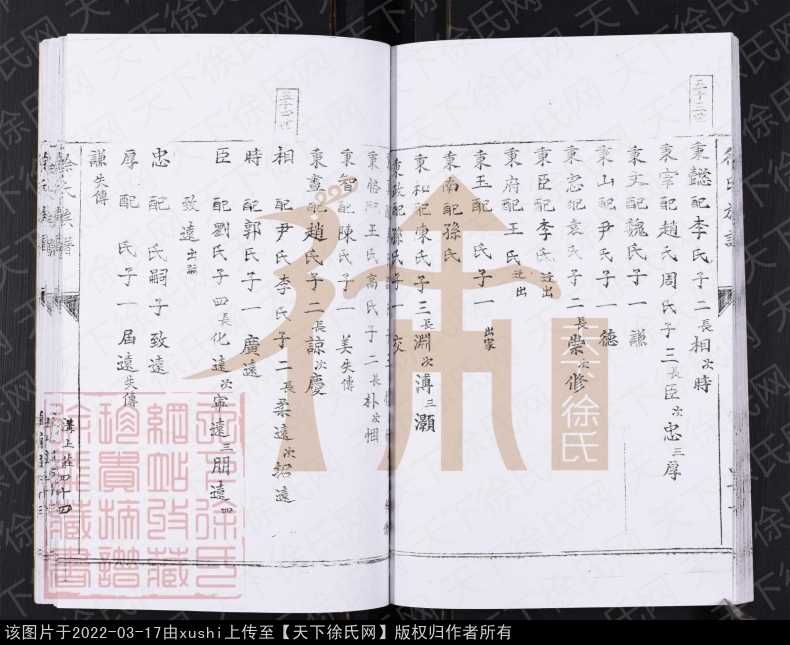 三十二世
秉懿配李氏子二長相次時
秉宰配趙氏周氏子三長臣次忠三厚
秉文配魏氏子一謙
秉山配尹氏子一德
秉忠配袁氏子二長崇次修
秉臣配李氏遊出
秉府配王氏遊出
秉玉配 氏子一 出家
秉南配孫氏
秉和配陳氏子三長淵次溥三灝
秉 王氏高氏子二長朴次
秉智配陳氏子一 美失傳
秉晝配趙氏子二長諒次慶
相配尹氏李氏子二長柔遠次招遠
時配郭氏子一廣遠
臣配劉氏子四長化遠次寧遠三朋遠四
致遠出嗣
忠配 氏嗣子致遠
厚配 氏子一屆遠失傳
謙失傳
徐氏族譜
溝上莊四十四
天下徐氏
天下徐氏网
该图片于2022-03-17由xushi上传至【天下徐氏网】版权归作者所有